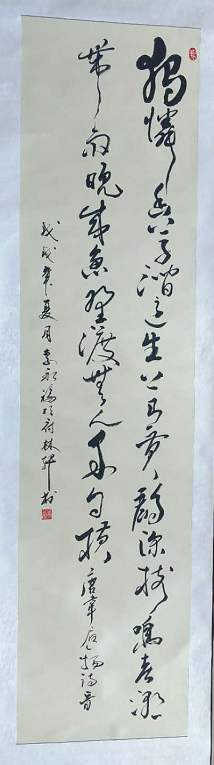 獨憐幽草澗邊生上有黃鸝深樹鳴春潮
帶雨晚來急野渡無人舟自橫 唐韋應物詩
戊戌年夏月